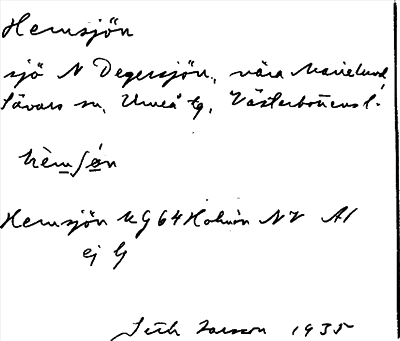 Hemsjön
sjö N Degersjön, nära Marielund,
Sävars sn, Umeå tg, Västerbottens l.
hèmʃön
Hemsjön kg 64 Holmön NV A1
ej G
Seth Larsson 1935